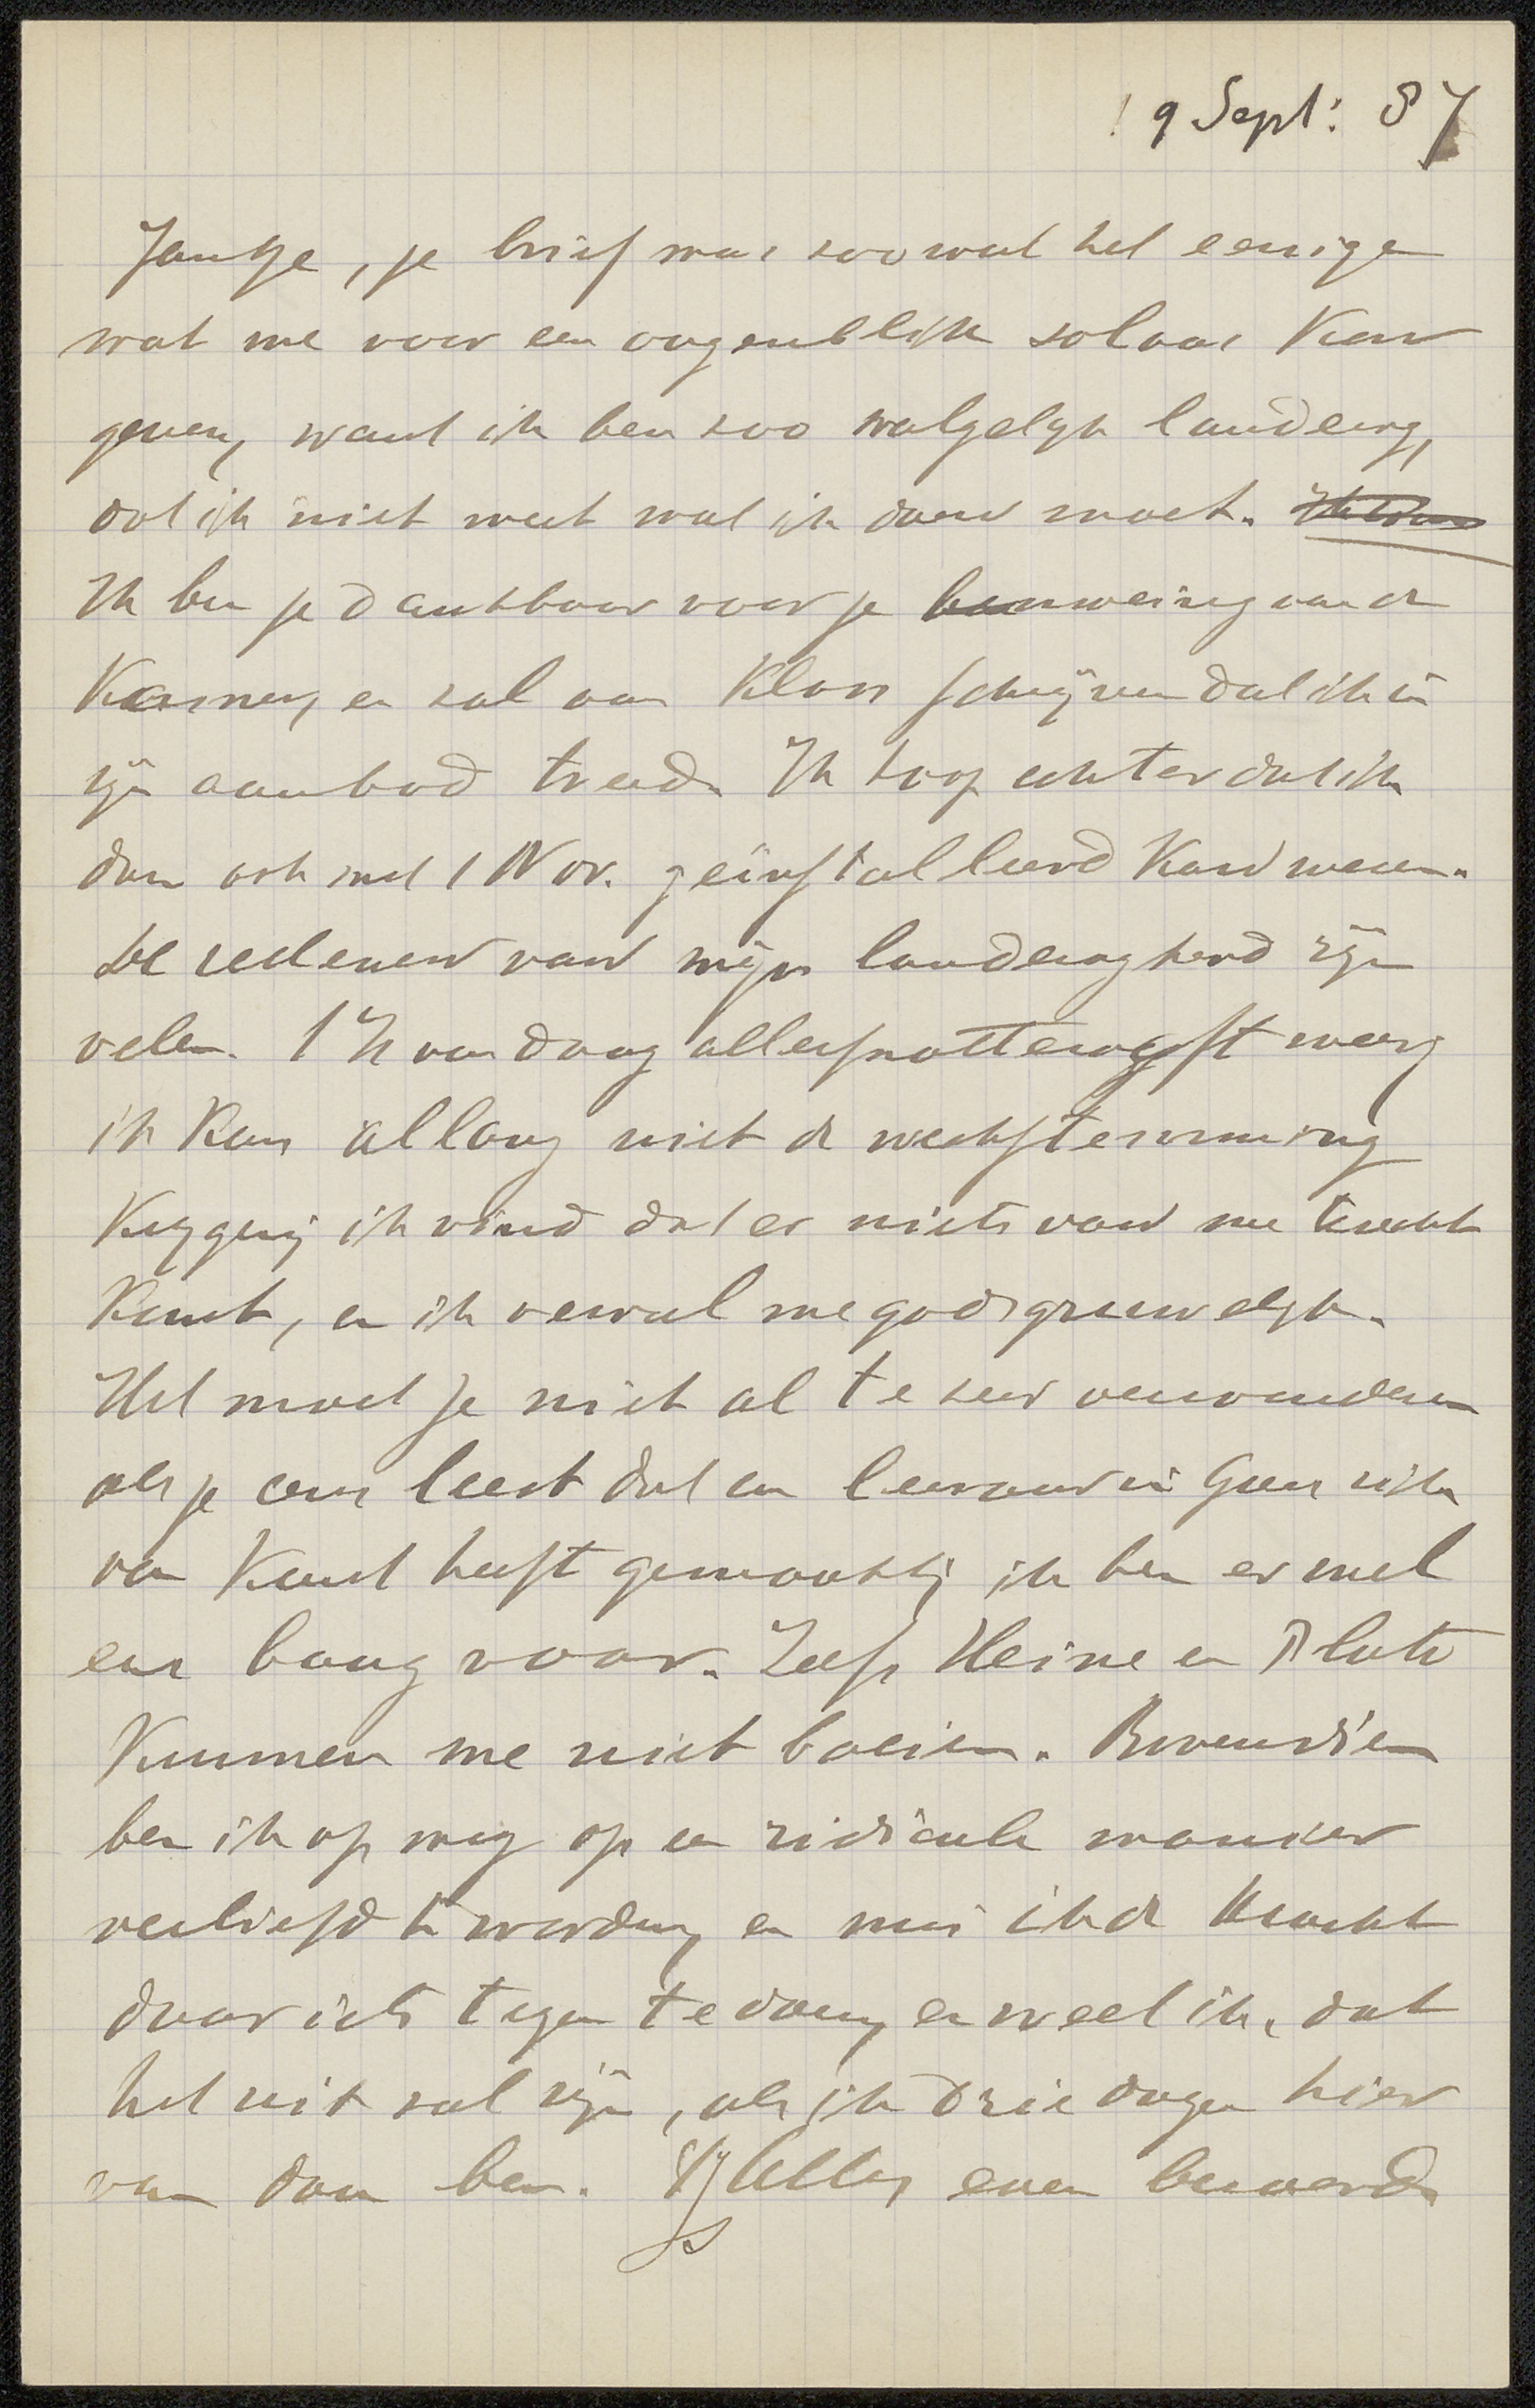 19 Sept: 87
Jantje, je brief was zoowat het eenige
wat me voor een oogenblik solaas kon
geven, want ik ben zoo walgelijk landerig,
dat ik niet weet wat ik doen moet.
Ik ben je dankbaar voor je aanwijzing van de
kamer, en zal aan Kloos schrijven dat ik in
zijn aanbod treed. Ik hoop echter dat ik
dan ook met 1 Nov. geïnstalleerd kan wezen.
De redenen van mijn landerigheid zijn
velen. 't Is vandaag allersnotterigst weer;
ik kan allang niet de werkstemming
krijgen; ik vind dat er niets van me terecht
komt, en ik verveel me godsgruwelijk.
Het moet je niet al te zeer verwonderen
als je eens leest dat een leeraar in Goes zich
van kant heeft gemaakt; ik ben er wel
eens bang voor. Zelfs Heine en Plato
kunnen me niet boeien. Bovendien
ben ik op weg op een ridicule manier
verliefd te worden, en mis ik de kracht
daar iets tegen te doen, en weet ik, dat
het uit zal zijn, als ik drie dagen hier
van daan ben. Alles even beroerd.